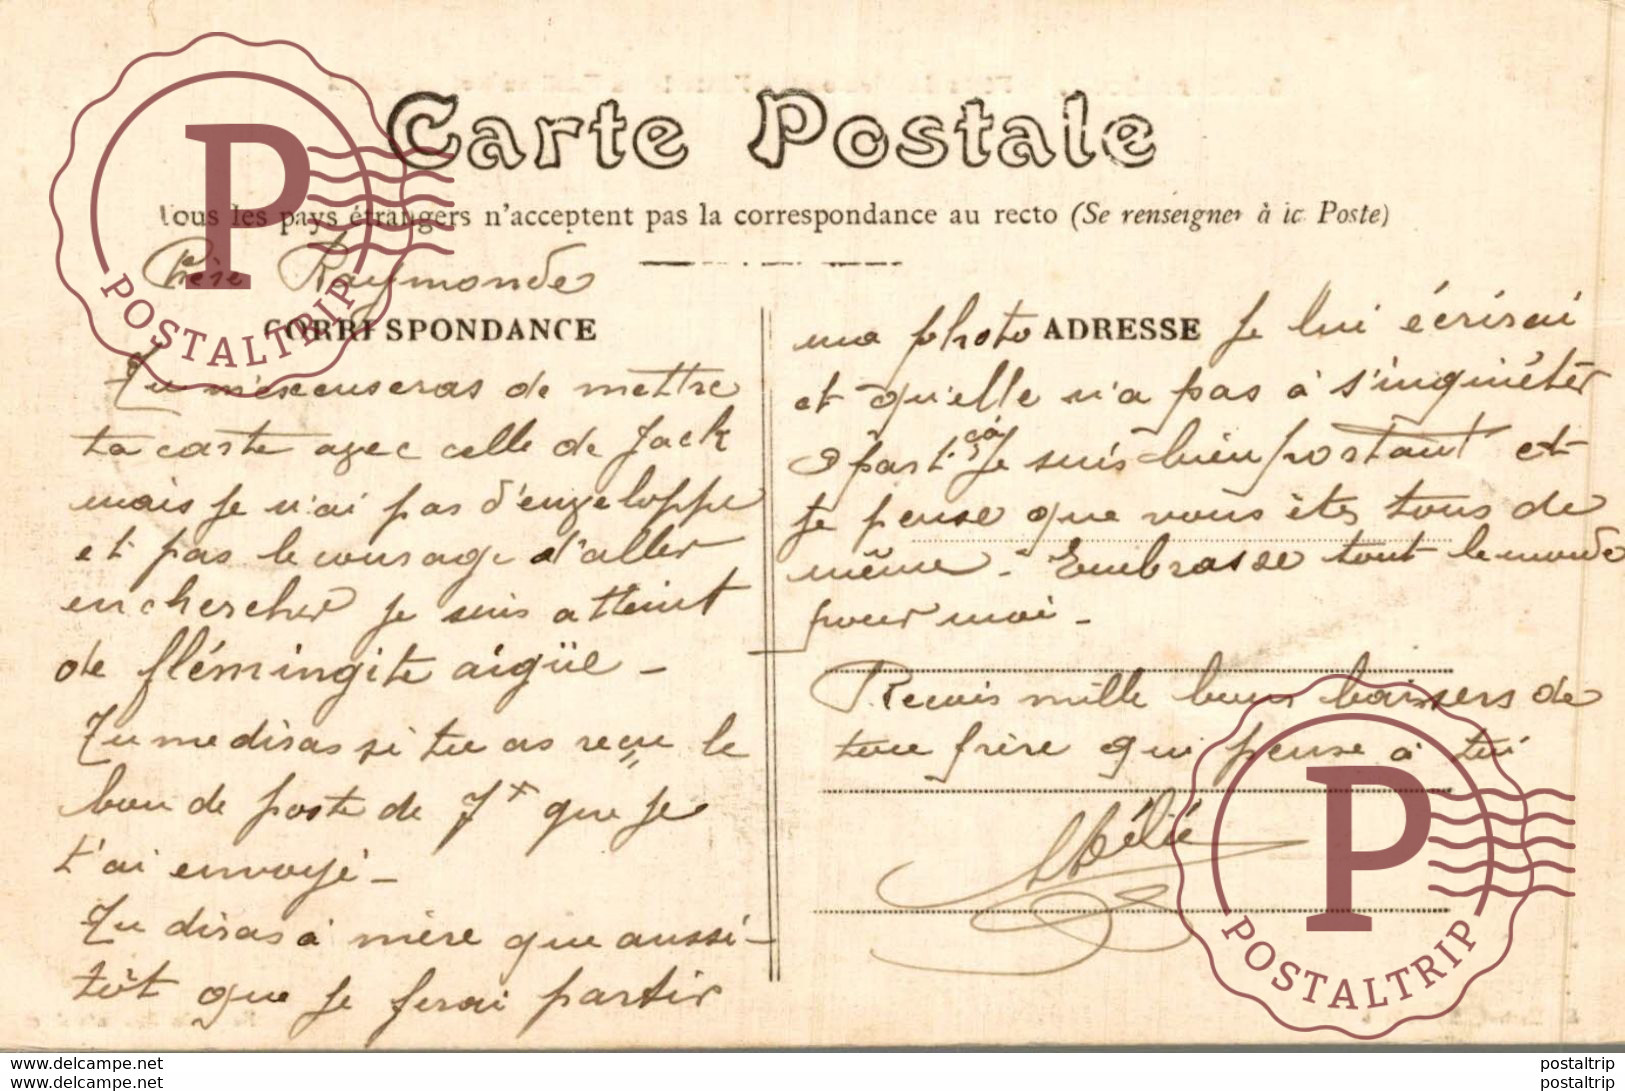 Carte Postale
Tous les pays étrangers n'acceptent pas la correspondance au recto (Se renseigner à la Poste)
Chère Raymonde
CORRESPONDANCE
Tu m'excuseras de mettre
ta carte avec celle de Jack
mais je n'ai pas d'enveloppe
et pas le courage d'aller
en chercher je suis atteint
de flémingite aigüe -
Tu me diras si tu as reçu le
bon de poste de 7f que je
t'ai envoyé -
Tu diras à mère que aussi-
tôt que je ferai partir
ADRESSE
ma photo je lui écrirai
et qu'elle n'a pas à s'inquiéter
à part ça je suis bien portant et
je pense que vous êtes tous de
même - Embrasse tout le monde
pour moi -
Reçois mille bons baisers de
ton frère qui pense à toi
Hélié
P
POSTALTRIP
P
POSTALTRIP
www.delcampe.net
postaltrip
www.delcampe.net
postaltrip